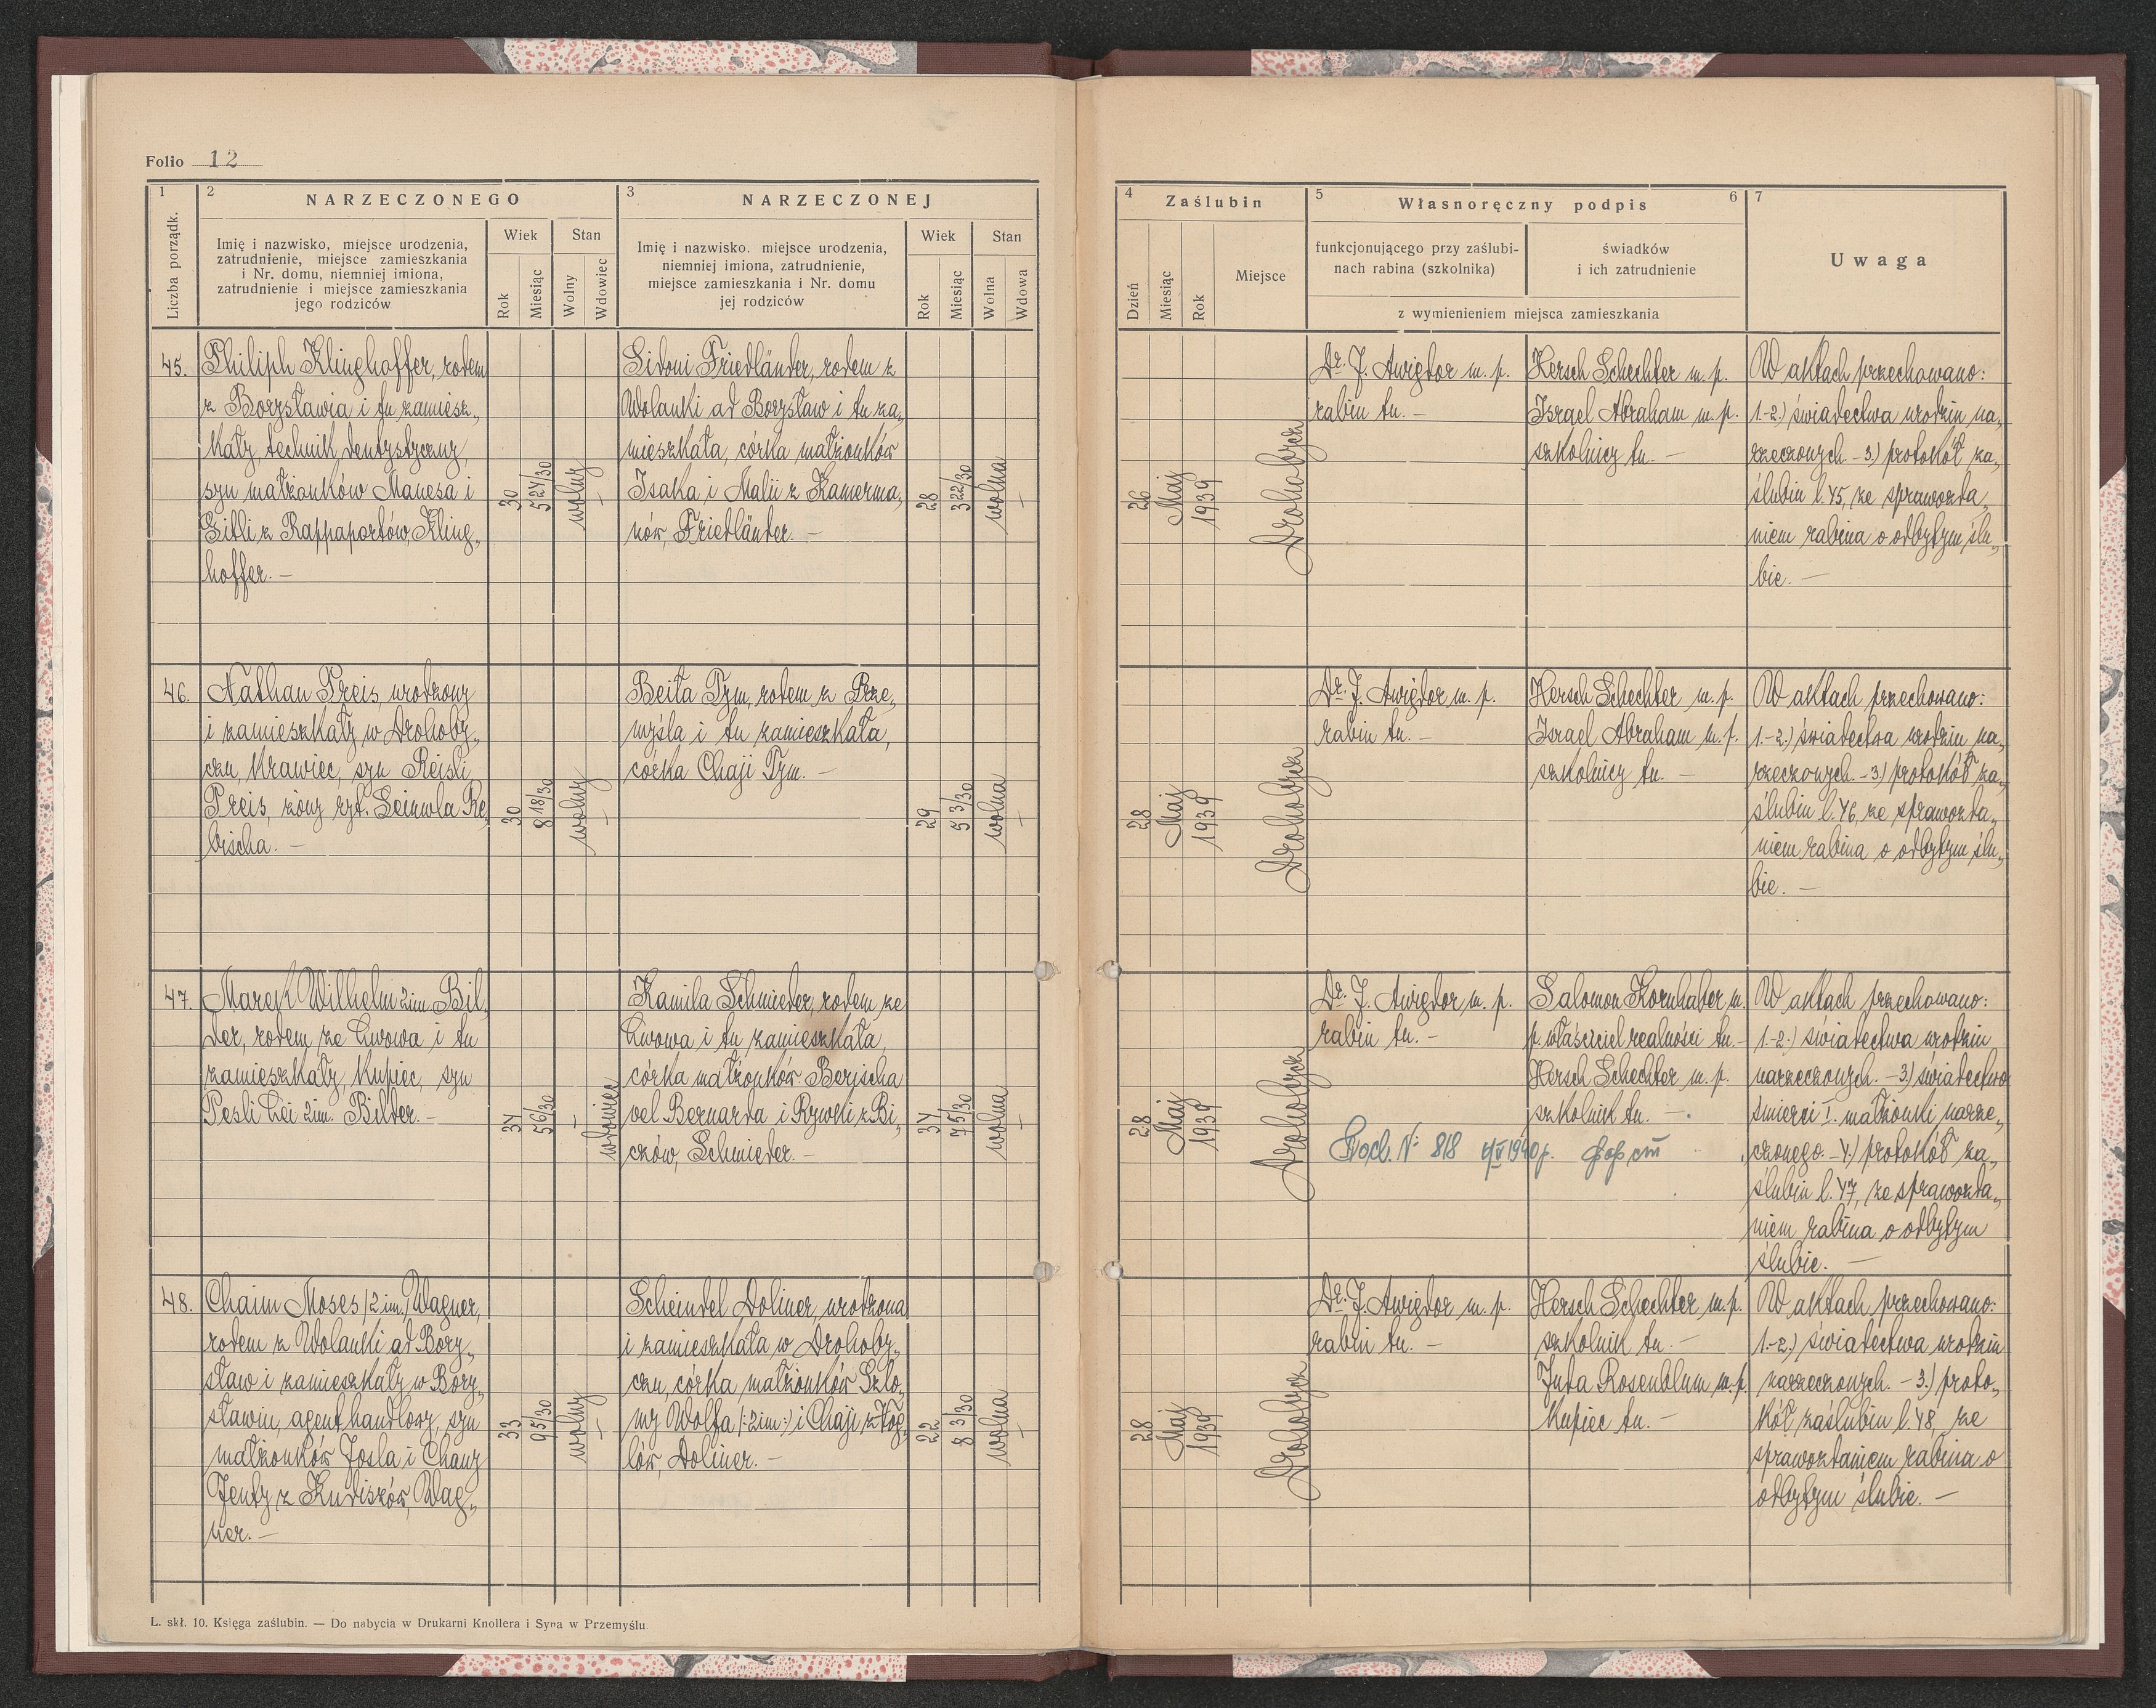 Folio 12
1
2
NARZECZONEGO
3
NARZECZONEJ
Liczba porządk.
Imię i nazwisko, miejsce urodzenia,
zatrudnienie, miejsce zamieszkania
i Nr. domu, niemniej imiona,
zatrudnienie i miejsce zamieszkania
jego rodziców
Wiek
Stan
Rok
Miesiąc
Wolny
Wdowiec
Imię i nazwisko. miejsce urodzenia,
niemniej imiona, zatrudnienie,
miejsce zamieszkania i Nr. domu
jej rodziców
Wiek
Stan
Rok
Miesiąc
Wolna
Wdowa
45.
Philiph Klinghoffer, rodem
z Borysławia i tu zamiesz„
kały, technik dentystyczny,
syn małżonków Manesa i
Gitli z Rappaportów, Kling„
hoffer. —
30
5 24/30
wolny
—
Sidoni Friedländer, rodem z
Wolanki ad Borysław i tu za„
mieszkała, córka małżonków
Isaka i Malii z Kamerma„
nów, Friedländer. —
28
3 22/30
wolna
—
46.
Nathan Preis, urodzony
i zamieszkały w Drohoby„
czu, krawiec, syn Reisli
Preis, żony ryt. Seinwla Re„
bischa. —
30
8 18/30
wolny
—
Beila Tym, rodem z Prze„
myśla i tu zamieszkała,
córka Chaji Tym. —
29
5 3/30
wolna
—
47.
Marek Wilhelm 2im. Bil„
der, rodem ze Lwowa i tu
zamieszkały, kupiec, syn
Pesli Lei 2im. Bilder. —
34
5 6/30
—
wdowiec
Kamila Schmieder, rodem ze
Lwowa i tu zamieszkała,
córka małżonków Berischa
vel Bernarda i Rywki z Bi„
czów, Schmieder. —
34
7 5/30
wolna
—
48.
Chaim Moses /2 im./ Wagner,
rodem z Wolanki ad Bory„
sław i zamieszkały w Bory„
sławiu, agent handlowy, syn
małżonków Josla i Chany
Jenty z Kudiszów, Wag„
ner. —
33
9 5/30
wolny
—
Scheindel Doliner, urodzona
i zamieszkała w Drohoby„
czu, córka małżonków Szlo„
my Wolfa /:2im:/ i Chaji z Vog„
lów, Doliner. —
22
8 3/30
wolna
—
L. skł. 10. Księga zaślubin. — Do nabycia w Drukarni Knollera i Syna w Przemyślu.
4
Zaślubin
5
Własnoręczny podpis
6
7
Dzień
Miesiąc
Rok
Miejsce
funkcjonującego przy zaślubi-
nach rabina (szkolnika)
świadków
i ich zatrudnienie
z wymienieniem miejsca zamieszkania
Uwaga
26
Maj
1939
Drohobycz
Dr. J. Awigdor m. p.
rabin tu. —
Hersch Schechter m. p.
Israel Abraham m. p.
szkolnicy tu. —
W aktach przechowano:
1.-2.) świadectwa urodzin na„
rzeczonych. – 3.) protokół za„
ślubin l. 45, ze sprawozda„
niem rabina o odbytym ślu„
bie. —
28
Maj
1939
Drohobycz
Dr. J. Awigdor m. p.
rabin tu. —
Hersch Schechter m. p.
Israel Abraham m. p.
szkolnicy tu. —
W aktach przechowano:
1.-2.) świadectwa urodzin na„
rzeczonych. – 3.) protokół za„
ślubin l. 46, ze sprawozda„
niem rabina o odbytym ślu„
bie. —
28
Maj
1939
Drohobycz
Dr. J. Awigdor m. p.
rabin tu. —
Salomon Kornhaber m.
p. właściciel realności tu. —
Hersch Schechter m. p.
szkolnik tu. —
№ 818 1940 р.
W aktach przechowano:
1.-2.) świadectwa urodzin
narzeczonych. – 3.) świadectwo
śmierci I. małżonki narze„
czonego. – 4.) protokół za„
ślubin l. 47, ze sprawozda„
niem rabina o odbytym
ślubie. —
28
Maj
1939
Drohobycz
Dr. J. Awigdor m. p.
rabin tu. —
Hersch Schechter m. p.
szkolnik tu. —
Juda Rosenblum m. p.
kupiec tu. —
W aktach przechowano:
1.-2.) świadectwa urodzin
narzeczonych. – 3.) proto„
kół zaślubin l. 48, ze
sprawozdaniem rabina o
odbytym ślubie. —